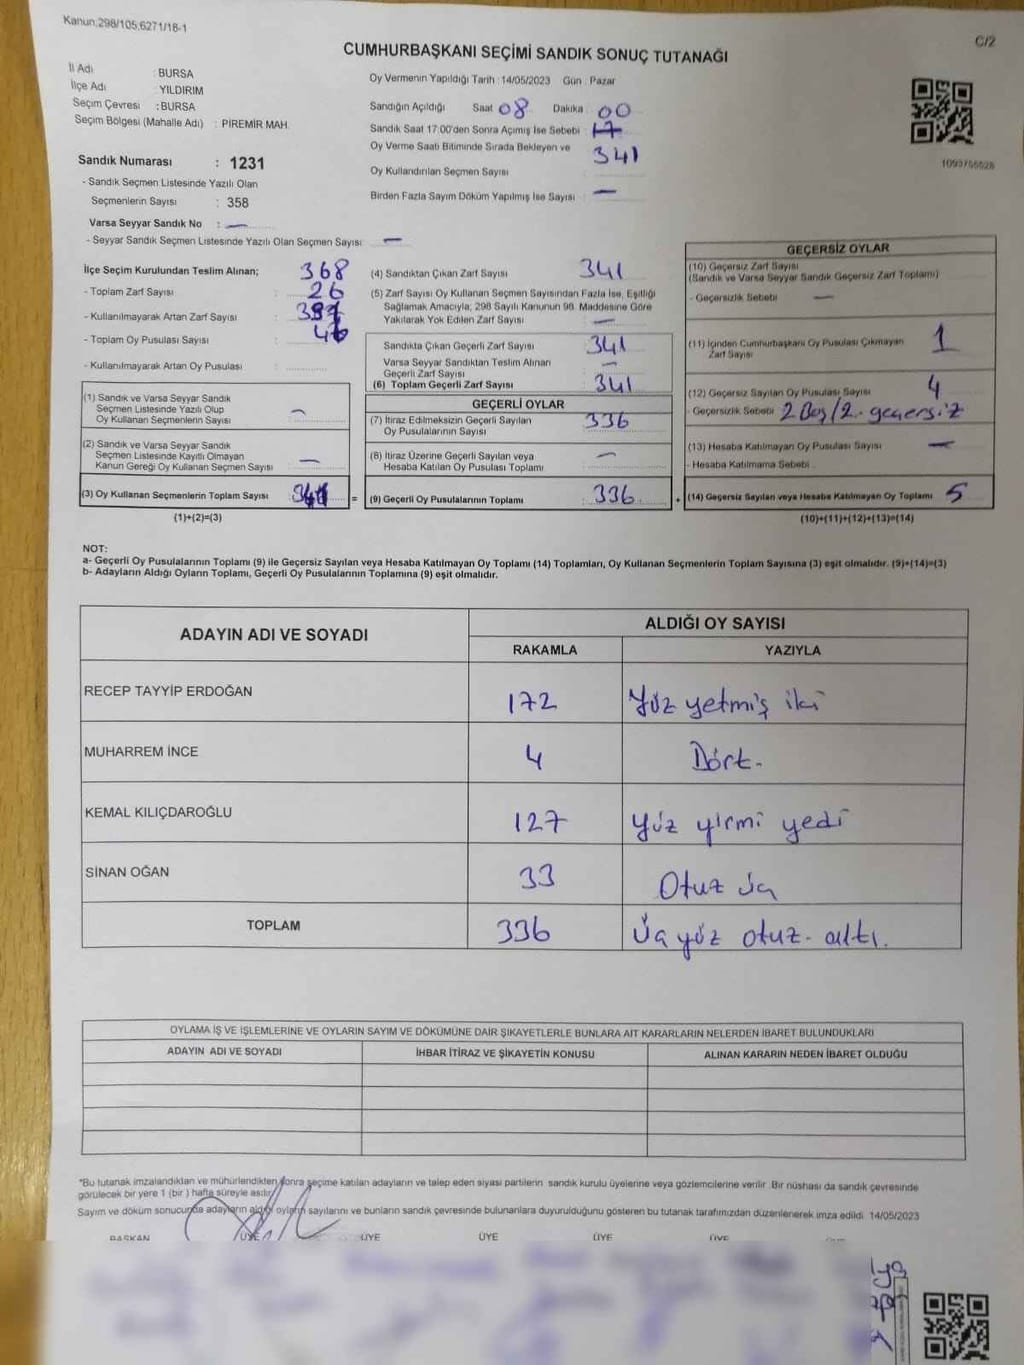 Kanun:298/105;6271/18-1
C/2
CUMHURBAŞKANI SEÇİMİ SANDIK SONUÇ TUTANAĞI
İl Adı : BURSA
İlçe Adı : YILDIRIM
Seçim Çevresi : BURSA
Seçim Bölgesi (Mahalle Adı) : PİREMİR MAH.
Sandık Numarası : 1231
- Sandık Seçmen Listesinde Yazılı Olan
Seçmenlerin Sayısı : 358
Varsa Seyyar Sandık No : —
- Seyyar Sandık Seçmen Listesinde Yazılı Olan Seçmen Sayısı —
Oy Vermenin Yapıldığı Tarih : 14/05/2023 Gün : Pazar
Sandığın Açıldığı Saat 08 Dakika 00
Sandık Saat 17:00'den Sonra Açımış İse Sebebi : 17
Oy Verme Saati Bitiminde Sırada Bekleyen ve 341
Oy Kullandırılan Seçmen Sayısı
Birden Fazla Sayım Döküm Yapılmış İse Sayısı : —
İlçe Seçim Kurulundan Teslim Alınan; 368
- Toplam Zarf Sayısı : 26
- Kullanılmayarak Artan Zarf Sayısı :
- Toplam Oy Pusulası Sayısı :
- Kullanılmayarak Artan Oy Pusulası :
(1) Sandık ve Varsa Seyyar Sandık
Seçmen Listesinde Yazılı Olup
Oy Kullanan Seçmenlerin Sayısı —
(2) Sandık ve Varsa Seyyar Sandık
Seçmen Listesinde Kayıtlı Olmayan
Kanun Gereği Oy Kullanan Seçmen Sayısı —
(3) Oy Kullanan Seçmenlerin Toplam Sayısı 341 =
(1)+(2)=(3)
(4) Sandıktan Çıkan Zarf Sayısı 341
(5) Zarf Sayısı Oy Kullanan Seçmen Sayısından Fazla İse, Eşitliği
Sağlamak Amacıyla; 298 Sayılı Kanunun 98. Maddesine Göre
Yakılarak Yok Edilen Zarf Sayısı —
Sandıkta Çıkan Geçerli Zarf Sayısı 341
Varsa Seyyar Sandıktan Teslim Alınan
Geçerli Zarf Sayısı —
(6) Toplam Geçerli Zarf Sayısı 341
GEÇERLİ OYLAR
(7) İtiraz Edilmeksizin Geçerli Sayılan
Oy Pusulalarının Sayısı 336
(8) İtiraz Üzerine Geçerli Sayılan veya
Hesaba Katılan Oy Pusulası Toplamı —
(9) Geçerli Oy Pusulalarının Toplamı 336 +
1093756628
GEÇERSİZ OYLAR
(10) Geçersiz Zarf Sayısı
(Sandık ve Varsa Seyyar Sandık Geçersiz Zarf Toplamı)
- Geçersizlik Sebebi —
(11) İçinden Cumhurbaşkanı Oy Pusulası Çıkmayan
Zarf Sayısı 1
(12) Geçersiz Sayılan Oy Pusulası Sayısı 4
- Geçersizlik Sebebi 2 Boş/2. geçersiz
(13) Hesaba Katılmayan Oy Pusulası Sayısı —
- Hesaba Katılmama Sebebi
(14) Geçersiz Sayılan veya Hesaba Katılmayan Oy Toplamı 5
(10)+(11)+(12)+(13)=(14)
NOT:
a- Geçerli Oy Pusulalarının Toplamı (9) ile Geçersiz Sayılan veya Hesaba Katılmayan Oy Toplamı (14) Toplamları, Oy Kullanan Seçmenlerin Toplam Sayısına (3) eşit olmalıdır. (9)+(14)=(3)
b- Adayların Aldığı Oyların Toplamı, Geçerli Oy Pusulalarının Toplamına (9) eşit olmalıdır.
ADAYIN ADI VE SOYADI
ALDIĞI OY SAYISI
RAKAMLA YAZIYLA
RECEP TAYYİP ERDOĞAN 172 Yüz yetmiş iki
MUHARREM İNCE 4 Dört.
KEMAL KILIÇDAROĞLU 127 yüz yirmi yedi
SİNAN OĞAN 33 Otuz üç
TOPLAM 336 Üç yüz otuz. altı.
OYLAMA İŞ VE İŞLEMLERİNE VE OYLARIN SAYIM VE DÖKÜMÜNE DAİR ŞİKAYETLERLE BUNLARA AİT KARARLARIN NELERDEN İBARET BULUNDUKLARI
ADAYIN ADI VE SOYADI İHBAR İTİRAZ VE ŞİKAYETİN KONUSU ALINAN KARARIN NEDEN İBARET OLDUĞU
*Bu tutanak imzalandıktan ve mühürlendikten sonra seçime katılan adayların ve talep eden siyasi partilerin sandık kurulu üyelerine veya gözlemcilerine verilir. Bir nüshası da sandık çevresinde
görülecek bir yere 1 (bir ) hafta süreyle asılır.
Sayım ve döküm sonucunda adayların aldığı oyların sayılarını ve bunların sandık çevresinde bulunanlara duyurulduğunu gösteren bu tutanak tarafımızdan düzenlenerek imza edildi. 14/05/2023
BAŞKAN ÜYE ÜYE ÜYE ÜYE ÜYE